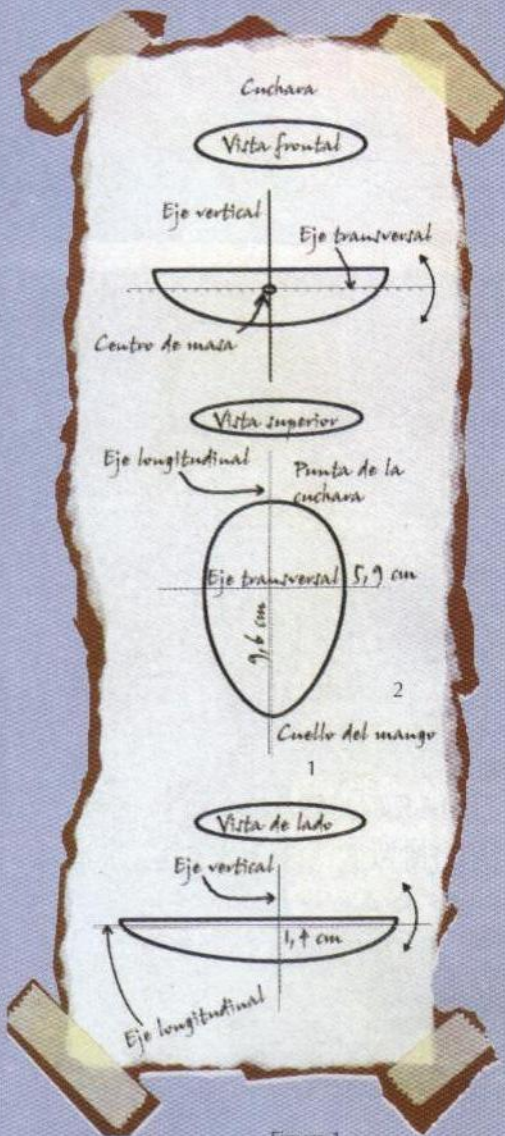 Cuchara
Vista frontal
Eje vertical
Eje transversal
Centro de masa
Vista superior
Eje longitudinal
Punta de la
cuchara
Eje transversal
5,9 cm
9,6 cm
2
Cuello del mango
1
Vista de lado
Eje vertical
1,4 cm
Eje longitudinal